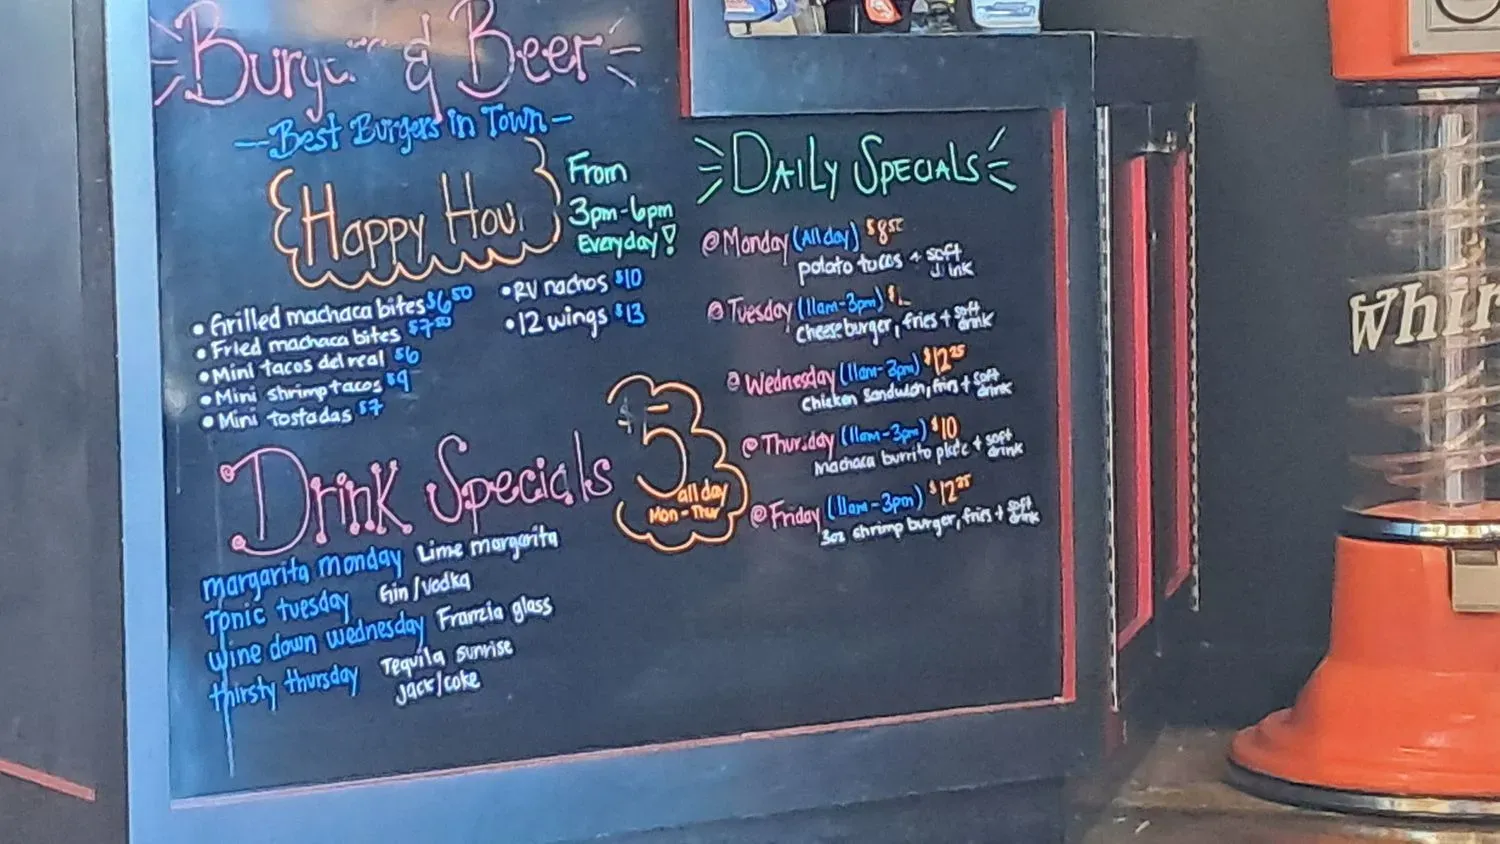 & Beer
Best Burgers in Town
Happy
From
3pm-6pm
Everyday!
• Grilled machaca bites $6⁵⁰
• Fried machaca bites $7⁵⁰
• Mini tacos del real $6
• Mini shrimp tacos $9
• Mini tostadas $7
• RV nachos $10
• 12 wings $13
Drink Specials
$5
all day
Mon-Thur
margarita monday Lime margarita
Tonic tuesday Gin/vodka
wine down wednesday Franzia glass
thirsty thursday Tequila sunrise
Jack/coke
Daily Specials
@Monday (All day)
potato tacos + soft
@Tuesday (11am-3pm)
cheeseburger, fries + soft
drink
@Wednesday (11am-3pm) $12²⁵
chicken sandwich, fries + soft
drink
@Thursday (11am-3pm) $10
machaca burrito + soft
drink
@Friday (11am-3pm) $12²⁵
3oz shrimp burger, fries + soft
drink